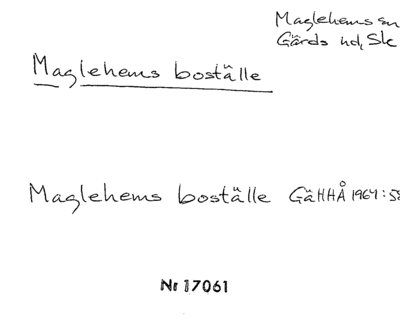 Maglehems sn
Gärds hd, Sk
Maglehems boställe
Maglehems boställe GäHHÅ 1964:58
Nr 17061